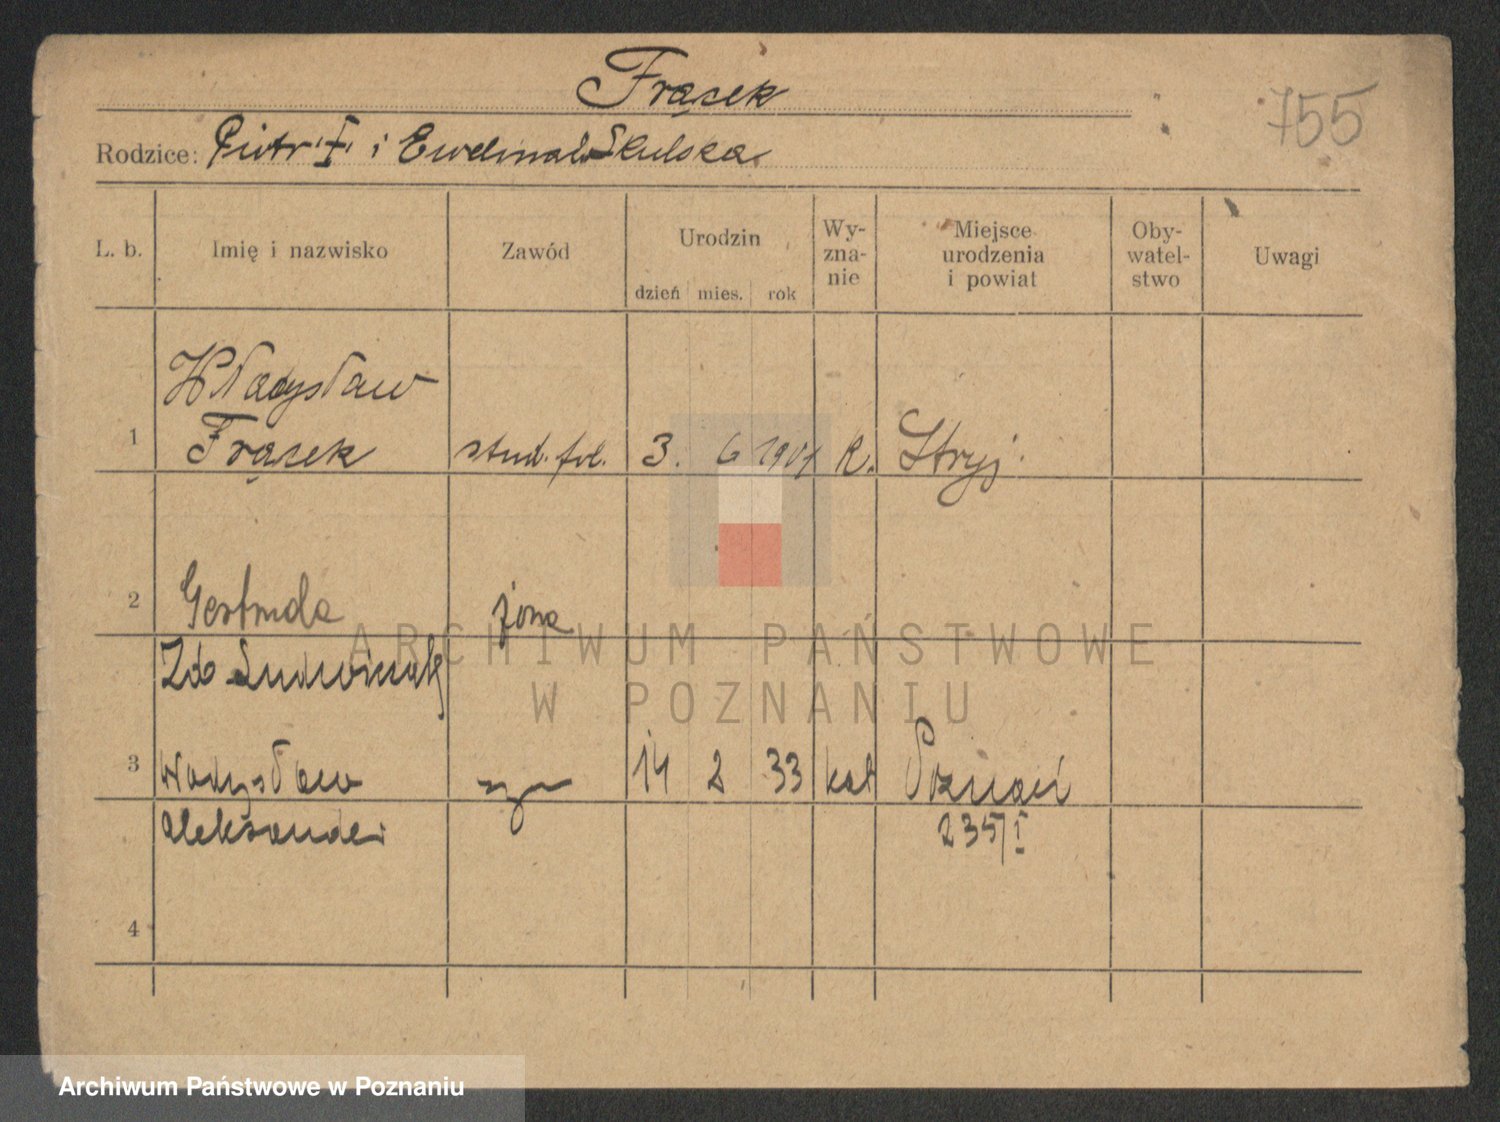 Frąsek
755
Rodzice: Piotr F. i Skulska
L. b. Imię i nazwisko Zawód Urodzin dzień mies. rok Wy-zna-nie Miejsce urodzenia i powiat Oby-watel-stwo Uwagi
Władysław
1 Frąsek stud. fil. 3. 6 1901 R. Stryj
2 Gertruda żona
Zd.
3 Władysław syn 14 2 33 kat Poznań
Aleksander 2357/I
4
ARCHIWUM PAŃSTWOWE
W POZNANIU
Archiwum Państwowe w Poznaniu